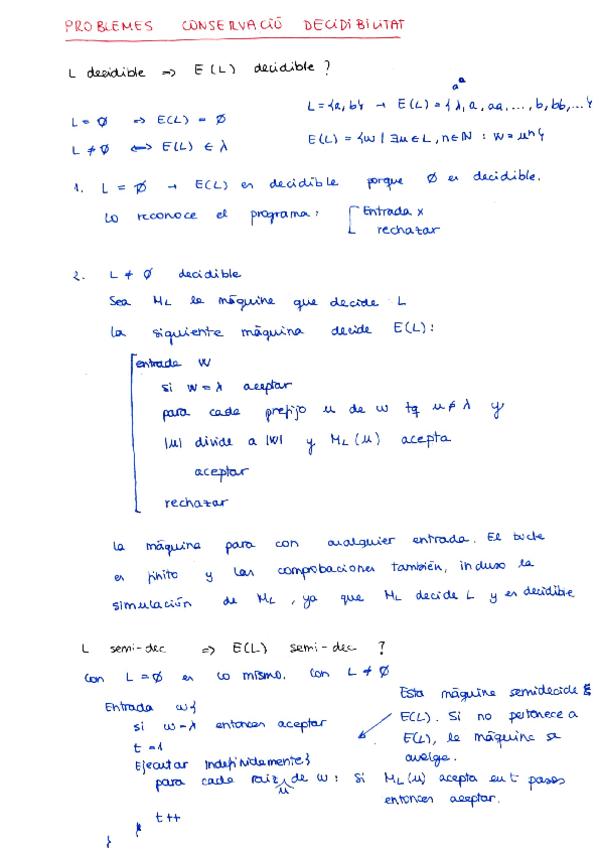 PROBLEMES CONSERVACIÓ DECIDIBILITAT
L decidible => E(L) decidible?
L = ∅ => E(L) = ∅
L ≠ ∅ <=> E(L) ∈ λ
L = {a, b} → E(L) = { λ, a, aa, ..., b, bb, ... }
aᵃ
E(L) = {w | ∃u ∈ L, n ∈ ℕ : w = uⁿ}
1. L = ∅ → E(L) es decidible porque ∅ es decidible.
Lo reconoce el programa:
Entrada x
rechazar
2. L ≠ ∅ decidible
Sea ML la máquina que decide L
La siguiente máquina decide E(L):
entrada w
si w = λ aceptar
para cada prefijo u de w tq u ≠ λ y
|u| divide a |w| y ML(u) acepta
aceptar
rechazar
La máquina para con cualquier entrada. El bucle
es finito y las comprobaciones también, incluso la
simulación de ML, ya que ML decide L y es decidible
L semi-dec => E(L) semi-dec ?
Con L = ∅ es lo mismo. Con L ≠ ∅
Entrada w{
si w = λ entonces aceptar
t = 1
Ejecutar Indefinidamente{
para cada raíz u de w: Si ML(u) acepta en t pasos
entonces aceptar.
t++
}
}
Esta máquina semidecide
E(L). Si no pertenece a
E(L), la máquina se
cuelga.